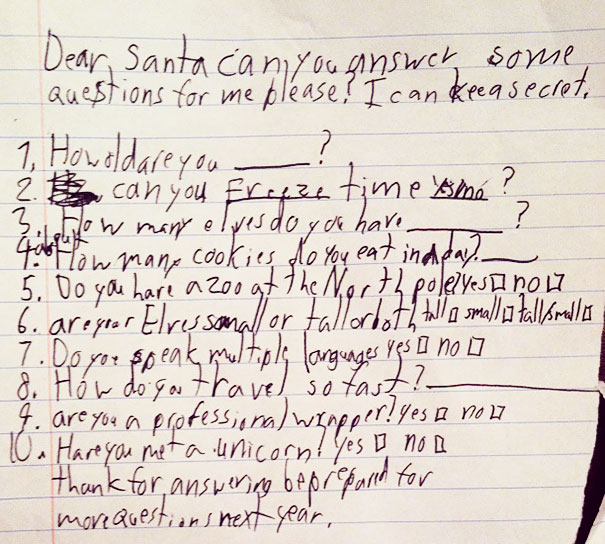 Dear Santa can you answer some
questions for me please? I can keea secret.
1, How old are you ______?
2. can you Freeze time ?
3. How many elves do you have ________?
4. about How many cookies do you eat in a day? ____
5. Do you have a zoo at the North pole? yes □ no □
6. are your Elves small or tall or both tall □ small □ tall/small □
7. Do you speak multiple languages yes □ no □
8. How do you travel so fast? ____________
9. are you a professional wrapper? yes □ no □
10. Have you met a unicorn? yes □ no □
thank for answering be prepared for
more questions next year.